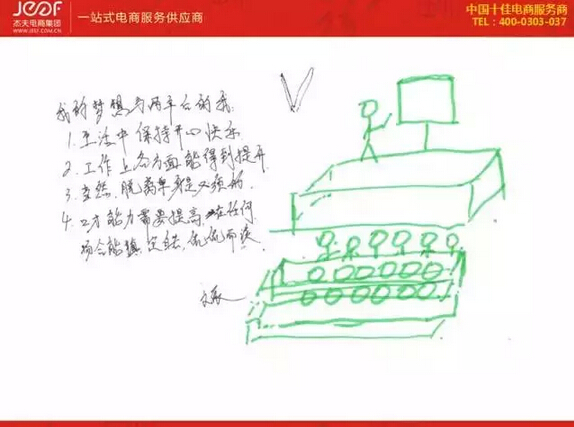 JEEF
杰夫电商集团
WWW.JEEF.COM.CN
一站式电商服务供应商
中国十佳电商服务商
TEL：400-0303-037
我的梦想与两年后的我：
1. 生活中保持开心快乐
2. 工作上各方面能得到提升
3. 当然，脱离单身是必须的
4. 口才能力需要提高，在任何
场合能镇定自若，侃侃而谈